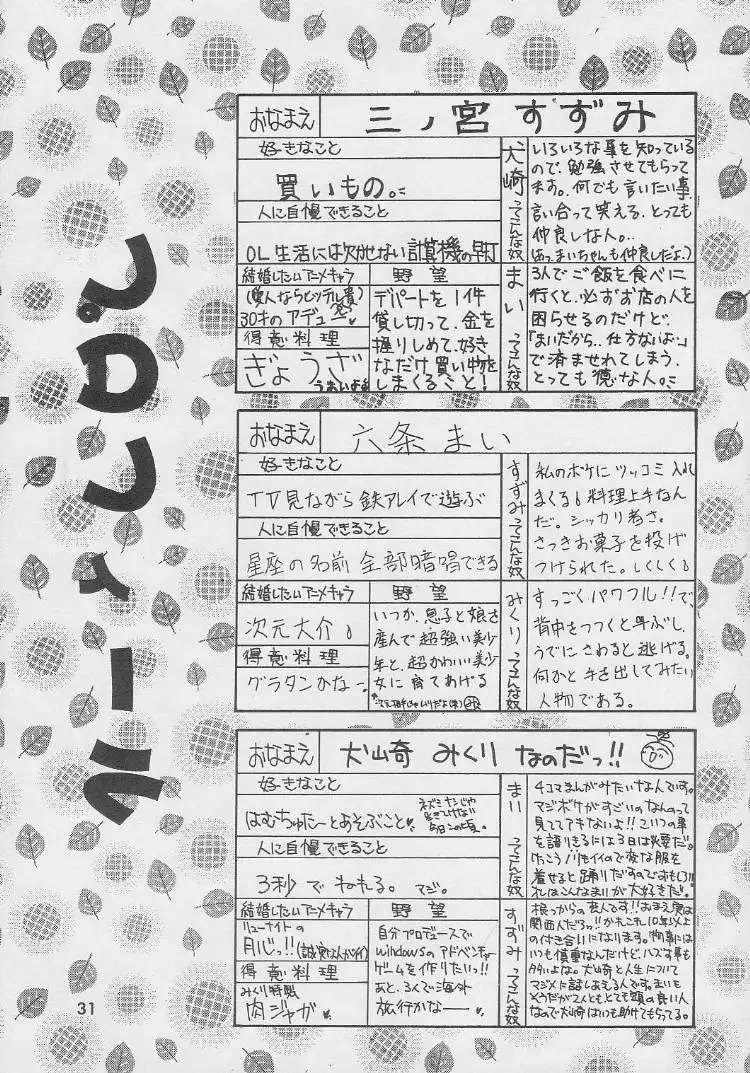 プロフィール
おなまえ
三ノ宮 すずみ
好きなこと
買いもの。
人に自慢できること
OL生活には欠かせない計算機の早打
結婚したいアニメキャラ
30才のアデュー
得意料理
ぎょうざ
うまいよ
野望
デパートを1件
貸し切って、金を
握りしめて、好き
なだけ買い物を
しまくること!
犬崎ってこんな奴
いろいろな事を知っている
ので、勉強させてもらって
ます。何でも言いたい事
言い合って笑える、とっても
仲良しな人。
(あっまいちゃんも仲良しだよ。)
まいってこんな奴
3人でご飯を食べに
行くと、必ずお店の人を
困らせるのだけど、
「まいだから、仕方ないよ」
で済ませれてしまう、
とっても得な人。
おなまえ
六条 まい
好きなこと
TV見ながら鉄アレイで遊ぶ
人に自慢できること
星座の名前 全部暗唱できる
結婚したいアニメキャラ
次元大介
得意料理
グラタンかなー
野望
いつか、息子と娘を
産んで超強い美少
年と、超かわいい美少
女に育てあげる
すずみってこんな奴
私のボケにツッコミ入れ
まくる 料理上手なん
だ。シッカリ者さ。
さっきお菓子を投げ
つけられた。しくしく
みくりってこんな奴
すっごくパワフル!!で、
背中をつつくと呼ぶし、
うでにさわると逃げる。
何かと手を出してみたい
人物である。
おなまえ
犬崎 みくり なのだっ!!
好きなこと
はむちゅたーとあそぶこと
人に自慢できること
3秒でねれる。マジ。
結婚したいアニメキャラ
リューナイトの
月心っ!!
得意料理
みくり特製
肉ジャガ
野望
自分プロデュースで
windowsのアドベンチャー
ゲームを作りたいっ!!
あと、3人で海外
旅行かなー
まいってこんな奴
4コマまんがみたいな人です。
マジボケがすごいのなんのって
見ててアキないよ!!こいつの事
を語りきるには3日は必要だ。
けっこうノリもイイので変な服を
着せると踊りだすのです
すずみってこんな奴
根っからの芸人です!!おまえ実は
関西人だろッ!!かれこれ10年以上
の付き合いになります。物事には
いつも慎重なんだけど、ハズす事も
多いよな。犬崎と人生について
マジメに話しあえる人です。まいも
そうだが2人ともとても頭の良い人
なので犬崎はいつも助けてもらってる。
31